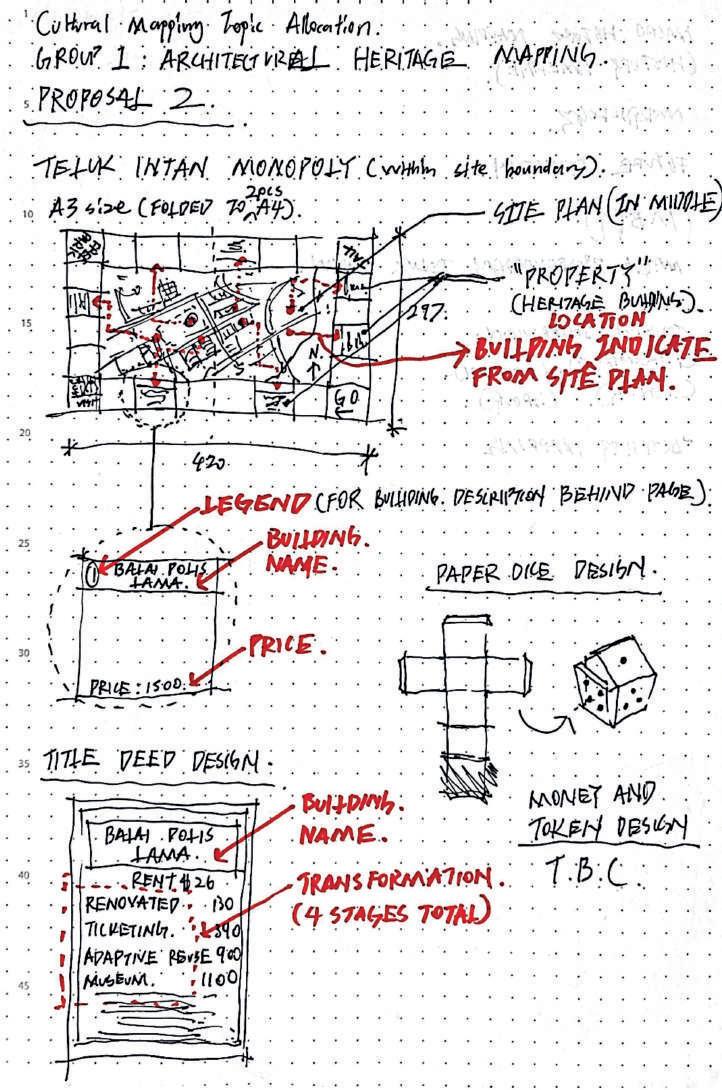 Cultural Mapping Topic Allocation.
GROUP 1 : ARCHITECTURAL HERITAGE MAPPING.
PROPOSAL 2.
5
TELUK INTAN MONOPOLY (within site boundary).
2pcs
10 A3 size (FOLDED TO A4).
SITE PLAN (IN MIDDLE)
"PROPERTY"
(HERITAGE BUILDING).
LOCATION
BUILDING INDICATE
FROM SITE PLAN.
15
297.
N.
JAIL
GO
20
420.
LEGEND (FOR BUILDING. DESCRIPTION BEHIND PAGE).
25
BUILDING.
NAME.
1 BALAI POLIS
LAMA.
PAPER DICE DESIGN.
30
PRICE.
PRICE : 1500.
35 TITLE DEED DESIGN.
BUILDING.
NAME.
BALAI POLIS
LAMA.
MONEY AND
TOKEN DESIGN
T.B.C.
40 RENT $26
TRANSFORMATION.
(4 STAGES TOTAL)
RENOVATED 130
TICKETING. 390
ADAPTIVE REUSE 900
MUSEUM. 1100
45